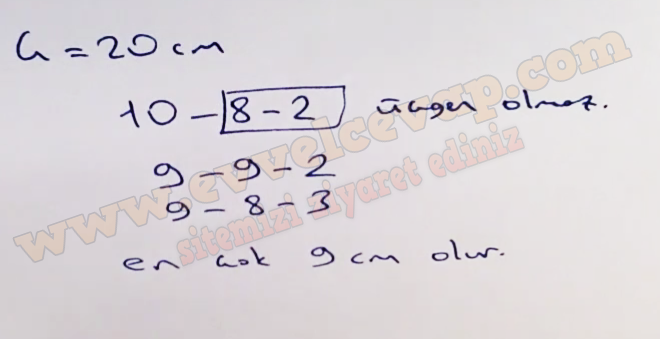 Ç = 20 cm
10 - 8 - 2 üçgen olmaz.
9 - 9 - 2
9 - 8 - 3
en çok 9 cm olur.
www.evvelcevap.com
sitemizi ziyaret ediniz